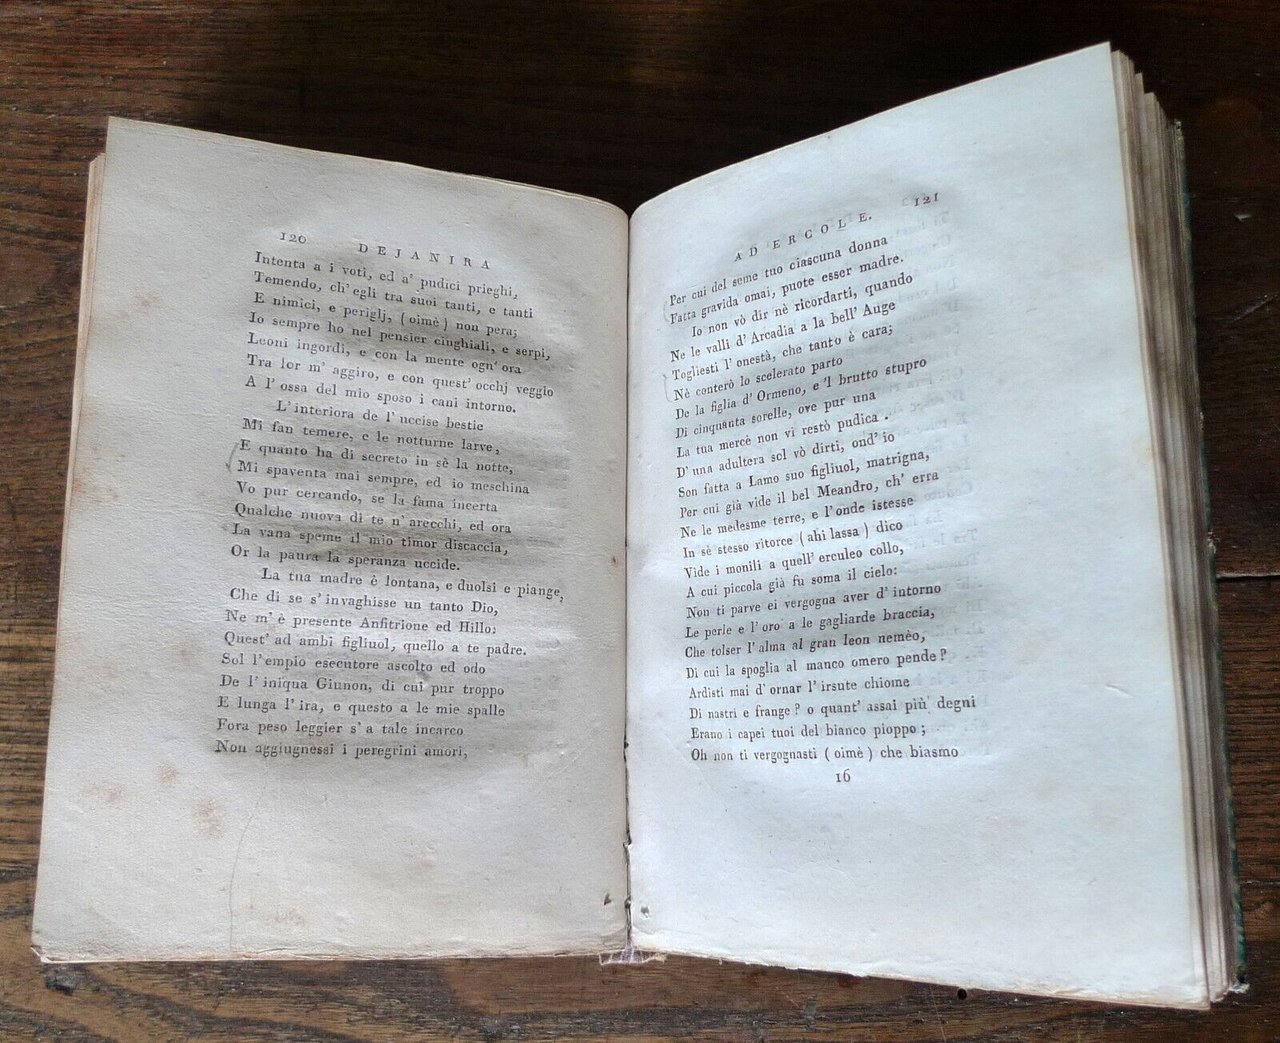 120 DEJANIRA
Intenta a i voti, ed a' pudici prieghi,
Temendo, ch' egli tra suoi tanti, e tanti
E nimici, e periglj, (oimè) non pera;
Io sempre ho nel pensier cinghiali, e serpi,
Leoni ingordi, e con la mente ogn' ora
Tra lor m' aggiro, e con quest' occhj veggio
A l' ossa del mio sposo i cani intorno.
L' interiora de l' uccise bestie
Mi fan temere, e le notturne larve,
E quanto ha di secreto in sè la notte,
Mi spaventa mai sempre, ed io meschina
Vo pur cercando, se la fama incerta
Qualche nuova di te n' arecchi, ed ora
La vana speme il mio timor discaccia,
Or la paura la speranza uccide.
La tua madre è lontana, e duolsi e piange,
Che di se s' invaghisse un tanto Dio,
Ne m' è presente Anfitrione ed Hillo;
Quest' ad ambi figliuol, quello a te padre.
Sol l' empio esecutore ascolto ed odo
De l' iniqua Giunon, di cui pur troppo
E lunga l' ira, e questo a le mie spalle
Fora peso leggier s' a tale incarco
Non aggiugnessi i peregrini amori,
AD ERCOLE. 121
Per cui del seme tuo ciascuna donna
Fatta gravida omai, puote esser madre.
Io non vò dir nè ricordarti, quando
Ne le valli d' Arcadia a la bell' Auge
Togliesti l' onestà, che tanto è cara;
Nè conterò lo scelerato parto
De la figlia d' Ormeno, e 'l brutto stupro
Di cinquanta sorelle, ove pur una
La tua mercè non vi restò pudica.
D' una adultera sol vò dirti, ond' io
Son fatta a Lamo suo figliuol, matrigna,
Per cui già vide il bel Meandro, ch' erra
Ne le medesme terre, e l' onde istesse
In sè stesso ritorce (ahi lassa) dico
Vide i monili a quell' erculeo collo,
A cui piccola già fu soma il cielo:
Non ti parve ei vergogna aver d' intorno
Le perle e l' oro a le gagliarde braccia,
Che tolser l' alma al gran leon nemèo,
Di cui la spoglia al manco omero pende?
Ardisti mai d' ornar l' irsute chiome
Di nastri e frange? o quant' assai più degni
Erano i capei tuoi del bianco pioppo;
Oh non ti vergognasti (oimè) che biasmo
16